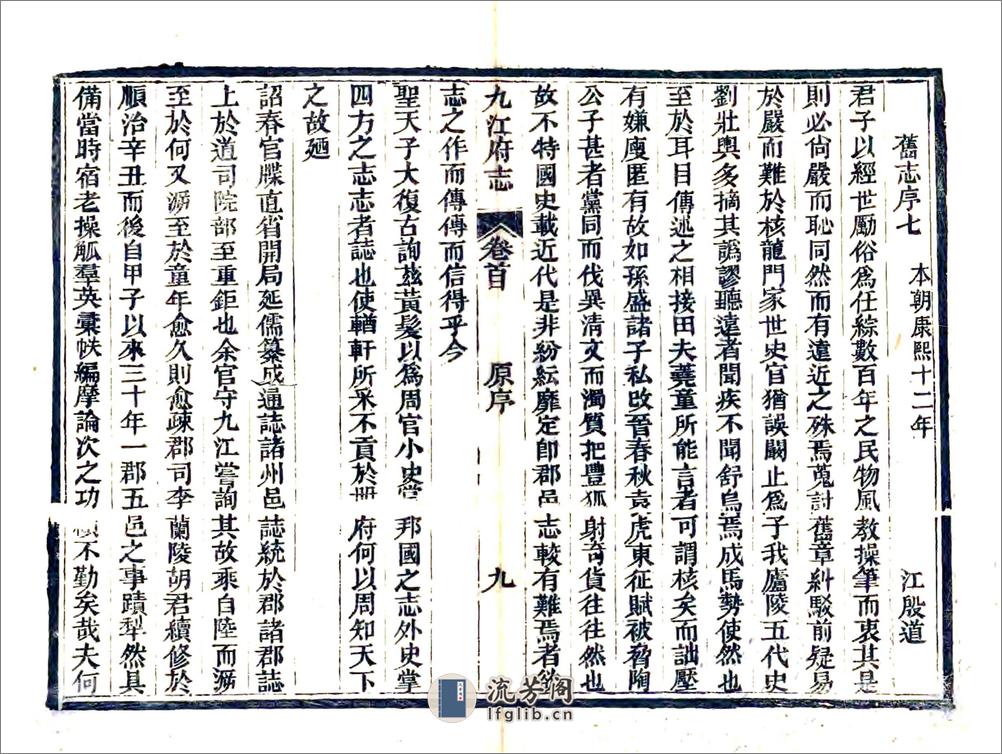 舊志序七 本朝康熙十二年 江殷道
君子以經世勵俗爲仕綜數百年之民物風教操筆而衷其是
則必尙嚴而恥同然而有遠近之殊焉蒐討舊章糾駁前疑易
於嚴而難於核龍門家世史官猶誤闞止爲子我廬陵五代史
劉壯輿多摘其譌謬聽遠者聞疾不聞舒烏焉成馬勢使然也
至於耳目傳述之相接田夫蕘童所能言者可謂核矣而詘壓
有嫌廋匿有故如孫盛諸子私改晉春秋袁虎東征賦被脅陶
公子甚者黨同而伐異淸文而濁質把豐狐射奇貨往往然也
故不特國史載近代是非紛紜靡定卽郡邑志較有難焉者
九江府志 卷首 原序 九
志之作而傳傳而信得乎今
聖天子大復古詢玆黃髮以爲周官小史掌邦國之志外史掌
四方之志志者誌也使輶軒所采不貢於冊府何以周知天下
之故廼
詔春官牒直省開局延儒纂成通誌諸州邑誌統於郡諸郡誌
上於道司院部至重鉅也余官守九江嘗詢其故乘自陸而溯
至於何又溯至於童年愈久則愈疎郡司李蘭陵胡君續修於
順治辛丑而後自甲子以來三十年一郡五邑之事蹟犁然具
備當時宿老操觚羣英彙帙編摩論次之功 不勤矣哉夫何
流芳阁
lfglib.cn